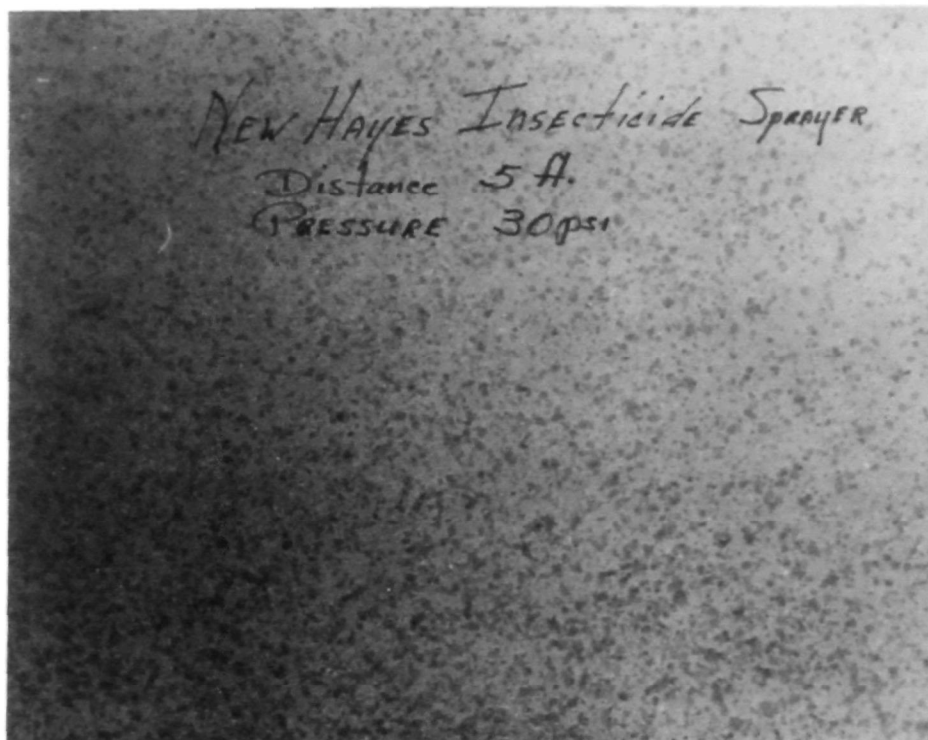 New Hayes Insecticide Sprayer
Distance 5 ft.
Pressure 30 psi